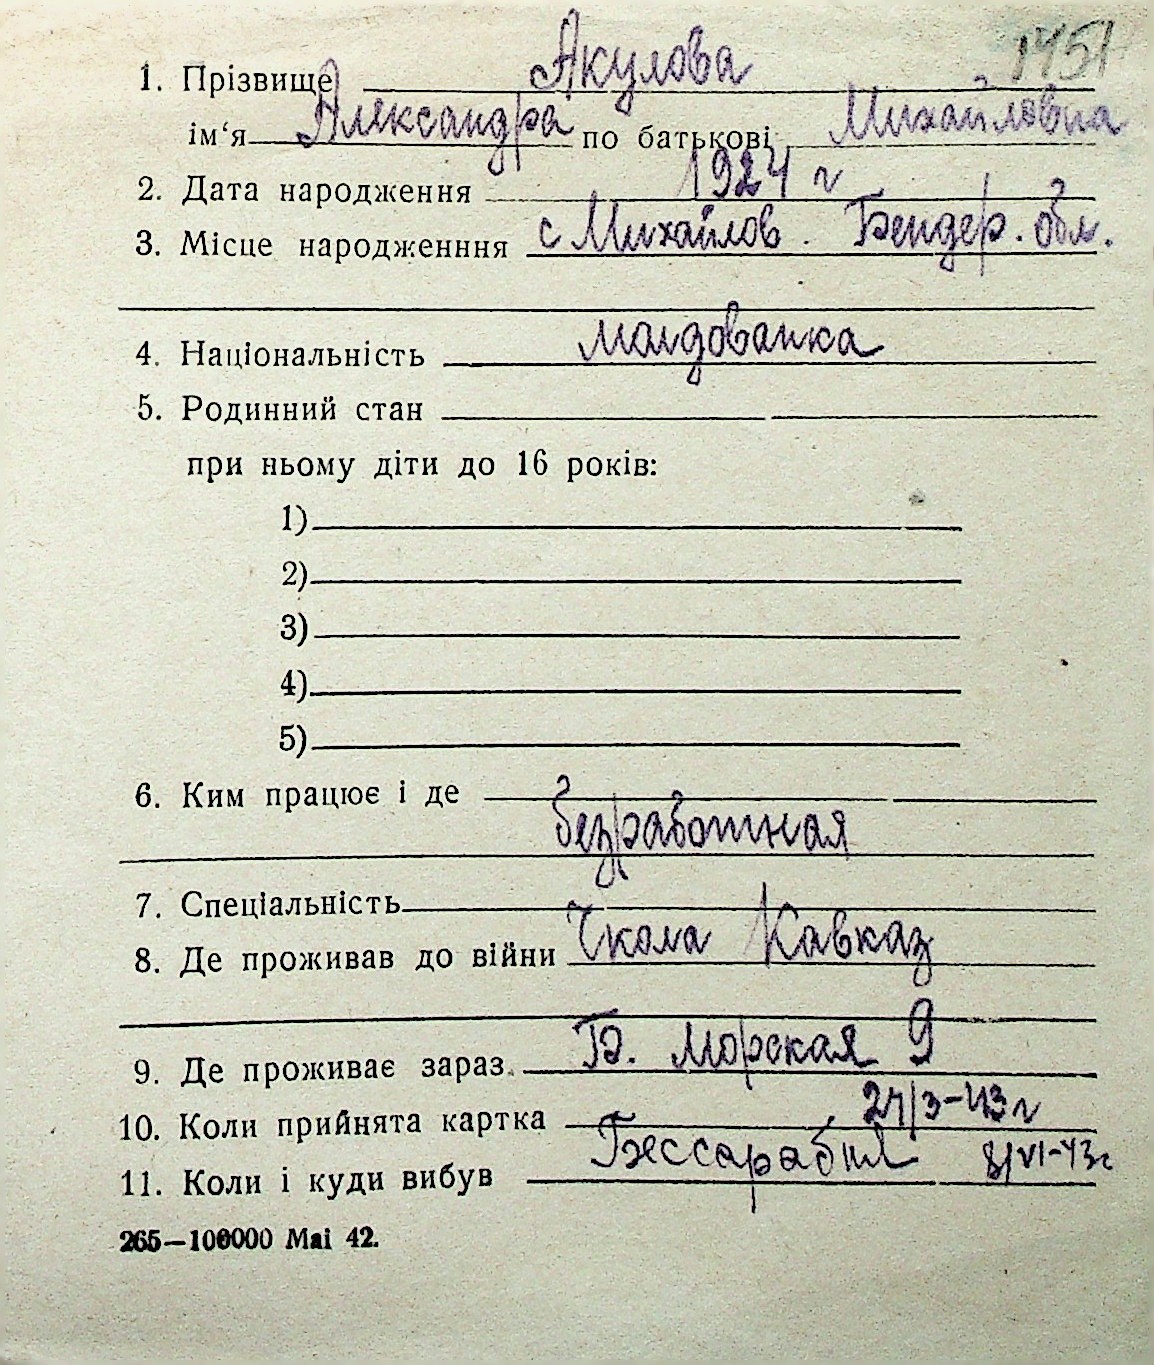 1451
1. Прізвище Акулова
ім‘я Александра по батькові Михайловна
2. Дата народження 1924 г
3. Місце народженння с Михайлов. Бендер. обл.
4. Національність молдованка
5. Родинний стан
при ньому діти до 16 років:
1)
2)
3)
4)
5)
6. Ким працює і де
безработная
7. Спеціальність
8. Де проживав до війни Школа Кавказ
9. Де проживає зараз Б. Морская 9
10. Коли прийнята картка 24/3-43 г
11. Коли і куди вибув Бессарабия 8/VI-43 г
265—100000 Маі 42.